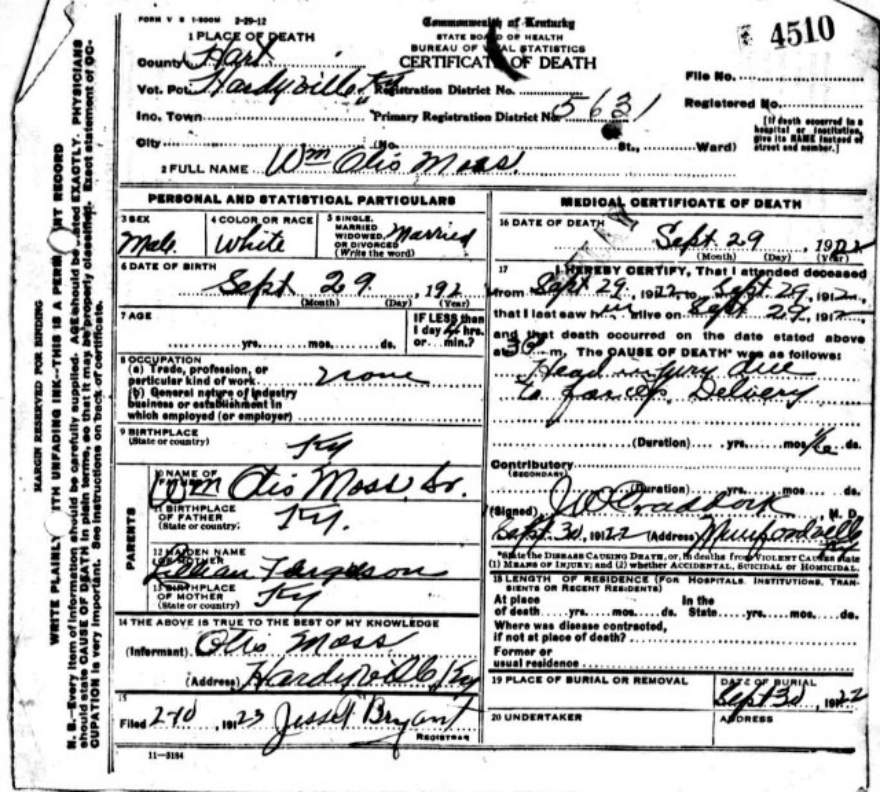 FORM V S 1-500M 2-29-12
Commonwealth of Kentucky
STATE BOARD OF HEALTH
BUREAU OF VITAL STATISTICS
CERTIFICATE OF DEATH
4510
1 PLACE OF DEATH
County Hart
Vot. Pct. Hardyville Ky Registration District No.
File No.
Inc. Town Primary Registration District No. 5631
Registered No.
City (No. St., Ward)
[If death occurred in a hospital or institution, give its NAME instead of street and number.]
2 FULL NAME Wm Otis Moss.
PERSONAL AND STATISTICAL PARTICULARS
3 SEX Male
4 COLOR OR RACE White
5 SINGLE, MARRIED WIDOWED, OR DIVORCED (Write the word) Married
6 DATE OF BIRTH
Sept. 29, 192
(Month) (Day) (Year)
7 AGE
yrs. mos. ds.
IF LESS than 1 day hrs. or min.?
8 OCCUPATION
(a) Trade, profession, or particular kind of work none
(b) General nature of industry
business or establishment in
which employed (or employer)
9 BIRTHPLACE
(State or country) Ky
PARENTS
10 NAME OF FATHER Wm Otis Moss, Sr.
11 BIRTHPLACE OF FATHER (State or country) Ky.
12 MAIDEN NAME OF MOTHER
13 BIRTHPLACE OF MOTHER (State or country) Ky
14 THE ABOVE IS TRUE TO THE BEST OF MY KNOWLEDGE
(Informant) Otis Moss
(Address) Hardyville, Ky
15
Filed 2-10, 1923 Bryant
REGISTRAR
11-3184
MEDICAL CERTIFICATE OF DEATH
16 DATE OF DEATH
Sept. 29, 1922
(Month) (Day) (Year)
17 I HEREBY CERTIFY, That I attended deceased
from Sept 29, 1922, to Sept 29, 191
that I last saw him alive on Sept 29, 191
and that death occurred on the date stated above
at m. The CAUSE OF DEATH* was as follows:
Head injury due
to Delvery
(Duration) yrs. mos. ds.
Contributory
(SECONDARY)
(Duration) yrs. mos. ds.
(Signed) J W Craddock, M. D.
Sept 30, 1922 (Address) Munfordville Ky
*State the DISEASE CAUSING DEATH, or, in deaths from VIOLENT CAUSES state
(1) MEANS OF INJURY; and (2) whether ACCIDENTAL, SUICIDAL or HOMICIDAL.
18 LENGTH OF RESIDENCE (FOR HOSPITALS, INSTITUTIONS, TRANSIENTS OR RECENT RESIDENTS)
At place of death yrs. mos. ds. In the State yrs. mos. ds.
Where was disease contracted,
if not at place of death?
Former or
usual residence
19 PLACE OF BURIAL OR REMOVAL
DATE OF BURIAL
Sept 30, 1922
20 UNDERTAKER
ADDRESS
MARGIN RESERVED FOR BINDING
WRITE PLAINLY WITH UNFADING INK--THIS IS A PERMANENT RECORD
N. B.--Every item of information should be carefully supplied. AGE should be stated EXACTLY. PHYSICIANS
should state CAUSE OF DEATH in plain terms, so that it may be properly classified. Exact statement of OC-
CUPATION is very important. See instructions on back of certificate.